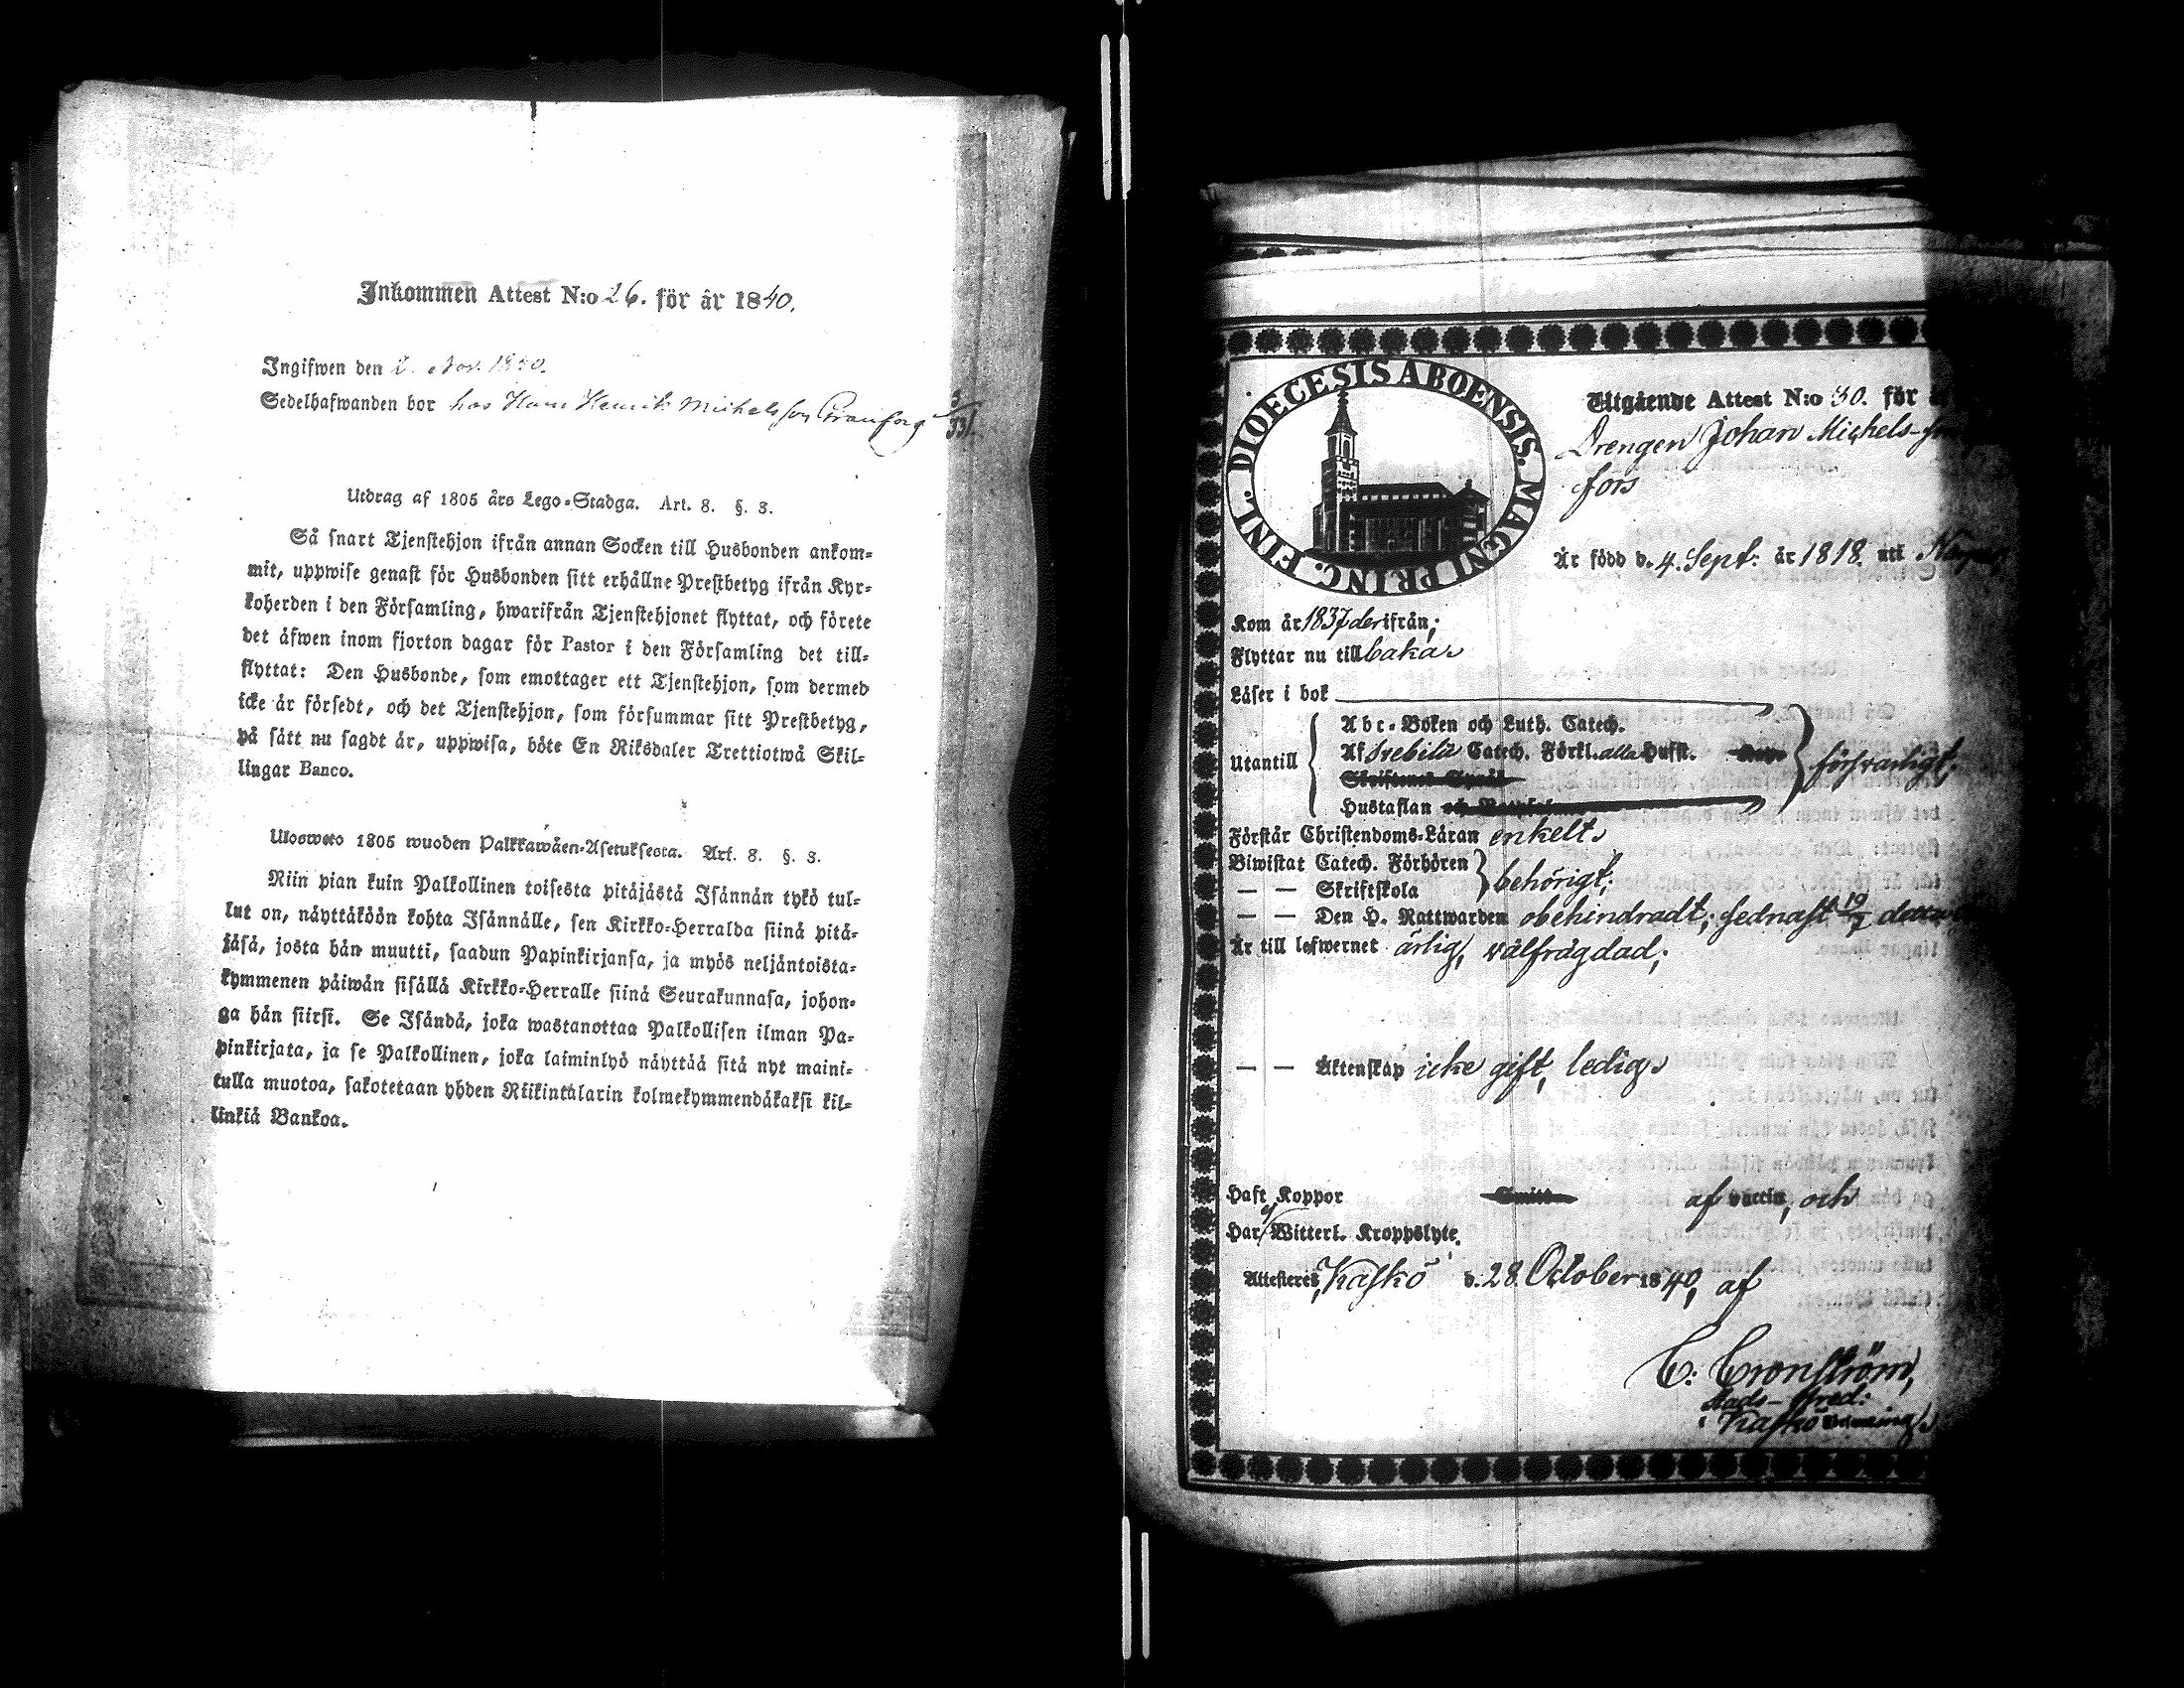 Inkommen Attest N:o 26. för år 1840.
Ingifwen den 2. Nov. 1840.
Sedelhafwanden bor hos Hans Henrik Michelsson Granfors 3/331.
Utdrag af 1805 års Lego-Stadga. Art. 8. §. 3.
Så snart Tjenstehjon ifrån annan Socken till Husbonden ankom-
mit, uppwise genast för Husbonden sitt erhållne Prestbetyg ifrån Kyr-
koherden i den Församling, hwarifrån Tjenstehjonet flyttat, och förete
det äfwen inom fjorton dagar för Pastor i den Församling det till-
flyttat: Den Husbonde, som emottager ett Tjenstehjon, som dermed
icke är försedt, och det Tjenstehjon, som försummar sitt Prestbetyg,
på sätt nu sagdt är, uppwisa, böte En Riksdaler Trettiotwå Skil-
lingar Banco.
Ulosweto 1805 wuoden Palkkawäen-Asetuksesta. Art. 8. §. 3.
Niin pian kuin Palkollinen toisesta pitäjästä Isännän tykö tul-
lut on, näyttäköön kohta Isännälle, sen Kirkko-Herralda siinä pitä-
jäsä, josta hän muutti, saadun Papinkirjansa, ja myös neljäntoista-
kymmenen päiwän sisällä Kirkko-Herralle siinä Seurakunnasa, johon-
ga hän siirsi. Se Isändä, joka wastanottaa Palkollisen ilman Pa-
pinkirjata, ja se Palkollinen, joka laiminlyö näyttää sitä nyt maini-
tulla muotoa, sakotetaan yhden Riikintalarin kolmekymmendäkaksi kil-
linkiä Bankoa.
DIOECESIS ABOENSIS. MAGNI PRINC. FINL.
Utgående Attest N:o 30. för
Drengen Johan Michels-
fors
Är född d. 4. Sept: år 1818. uti
Kom år 1837 derifrån;
Flyttar nu till baka
Läser i bok
Abc-Boken och Luth. Catech.
Utantill Af Svebilii Catech. Förkl. alla Hufst. försvarligt;
Hustaflan
Förstår Christendoms-Läran enkelt
Biwistat Catech. Förhören
— — Skriftskola behörigt;
— — Den H. Nattwarden obehindradt; sednast 19/7
Är till lefwernet ärlig, välfrägdad;
— — Äktenskap icke gift, ledig
Haft Koppor af vaccin, och
Har ej Witterl. Kroppslyte.
Attesteres, Kaskö d. 28 October 1840, af
C: Cronström,
Stads-Pred:
i Kaskö